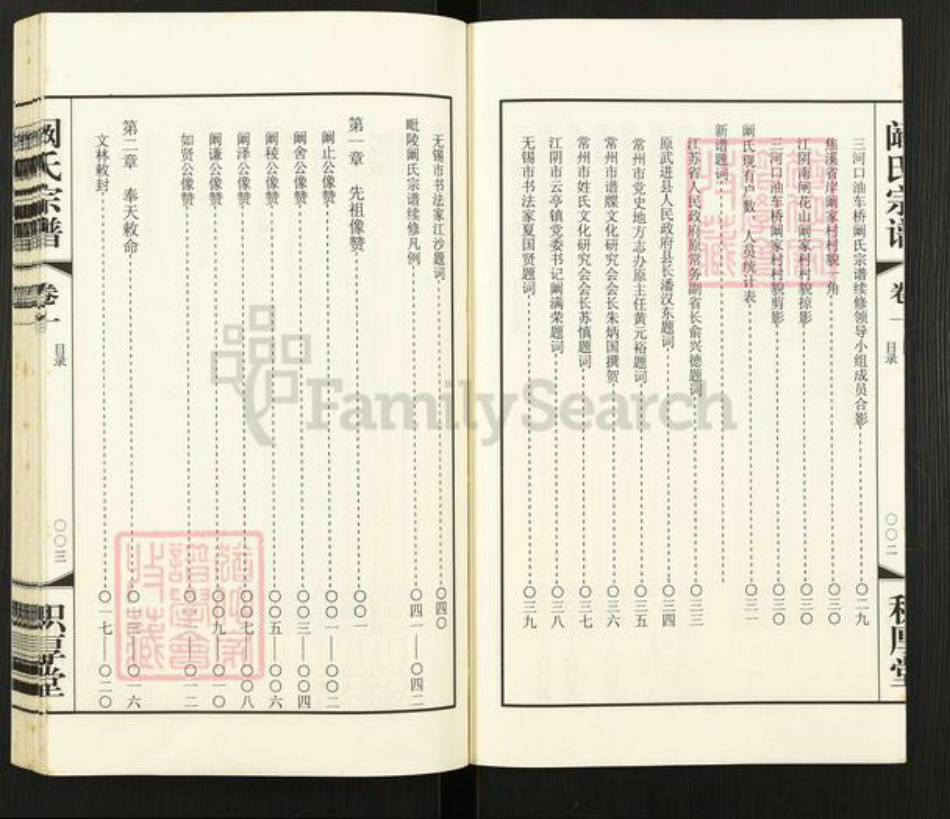 阚氏宗谱
卷一
目录
〇〇二
积厚堂
三河口油车桥阚氏宗谱续修领导小组成员合影 〇二九
焦溪省岸阚家村村貌一角 〇三〇
江阴南闸花山阚家村村貌掠影 〇三〇
三河口油车桥阚家村村貌剪影 〇三〇
阚氏现有户数、人员统计表 〇三一
新谱题词
江苏省人民政府原常务副省长俞兴德题词 〇三三
原武进县人民政府县长潘汉东题词 〇三四
常州市党史地方志办原主任黄元裕题词 〇三五
常州市谱牒文化研究会会长朱炳国撰贺 〇三六
常州市姓氏文化研究会会长苏慎题词 〇三七
江阴市云亭镇党委书记阚满荣题词 〇三八
无锡市书法家夏国贤题词 〇三九
无锡市书法家江沙题词 〇四〇
毗陵阚氏宗谱续修凡例 〇四一——〇四二
第一章 先祖像赞 〇〇一
阚止公像赞 〇〇一——〇〇二
阚舍公像赞 〇〇三——〇〇四
阚稜公像赞 〇〇五——〇〇六
阚泽公像赞 〇〇七——〇〇八
阚谦公像赞 〇〇九——〇一〇
如贤公像赞 〇一一——〇一二
第二章 奉天敕命 〇一三——〇一六
文林敕封 〇一七——〇二〇
阚氏宗谱
卷一
目录
〇〇三
积厚堂
FamilySearch